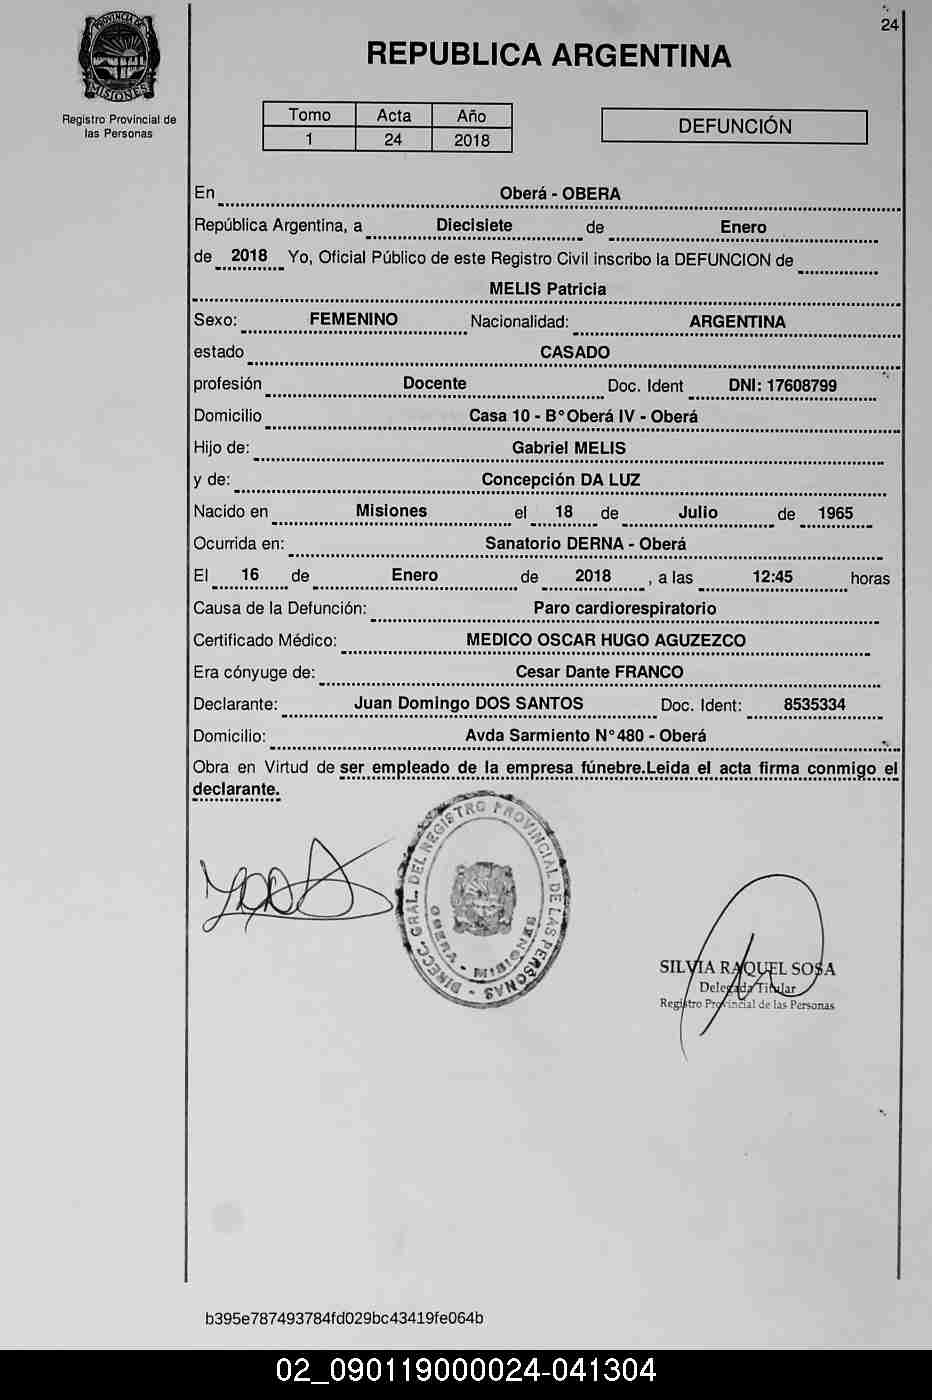 24
PROVINCIA DE
MISIONES
Registro Provincial de
las Personas
REPUBLICA ARGENTINA
Tomo Acta Año
1 24 2018
DEFUNCIÓN
En Oberá - OBERA
República Argentina, a Diecisiete de Enero
de 2018 Yo, Oficial Público de este Registro Civil inscribo la DEFUNCION de
MELIS Patricia
Sexo: FEMENINO Nacionalidad: ARGENTINA
estado CASADO
profesión Docente Doc. Ident DNI: 17608799
Domicilio Casa 10 - B° Oberá IV - Oberá
Hijo de: Gabriel MELIS
y de: Concepción DA LUZ
Nacido en Misiones el 18 de Julio de 1965
Ocurrida en: Sanatorio DERNA - Oberá
El 16 de Enero de 2018 , a las 12:45 horas
Causa de la Defunción: Paro cardiorespiratorio
Certificado Médico: MEDICO OSCAR HUGO AGUZEZCO
Era cónyuge de: Cesar Dante FRANCO
Declarante: Juan Domingo DOS SANTOS Doc. Ident: 8535334
Domicilio: Avda Sarmiento N° 480 - Oberá
Obra en Virtud de ser empleado de la empresa fúnebre.Leida el acta firma conmigo el
declarante.
DIRECC. GRAL. DEL REGISTRO PROVINCIAL DE LAS PERSONAS -
OBERA - MISIONES
SILVIA RAQUEL SOSA
Delegada Titular
Registro Provincial de las Personas
b395e787493784fd029bc43419fe064b
02_090119000024-041304